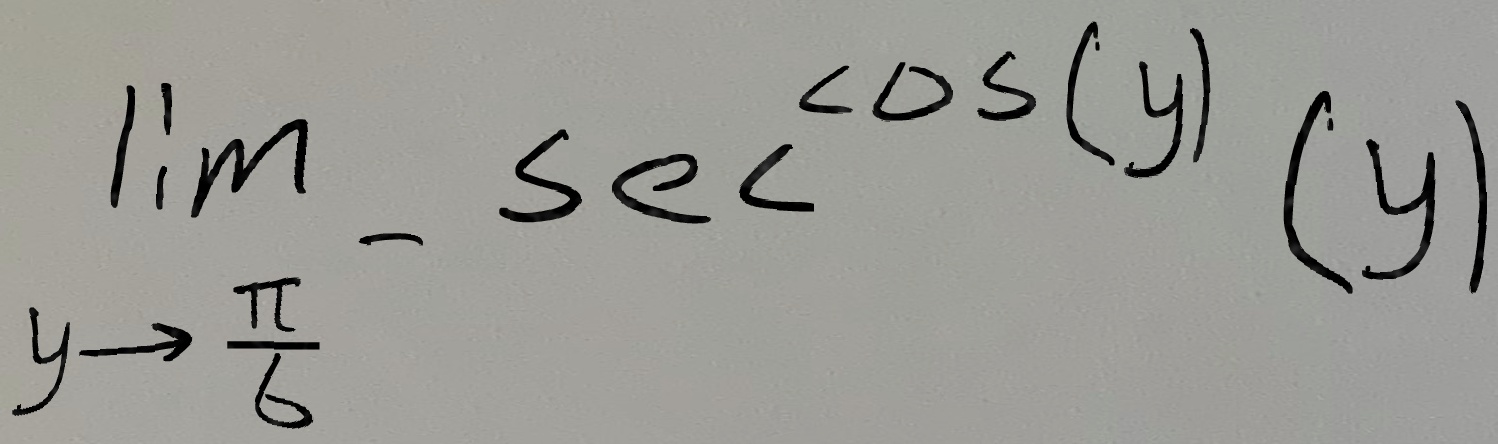 $\lim_{y \to \frac{\pi}{6}^-} \sec^{\cos(y)}(y)$